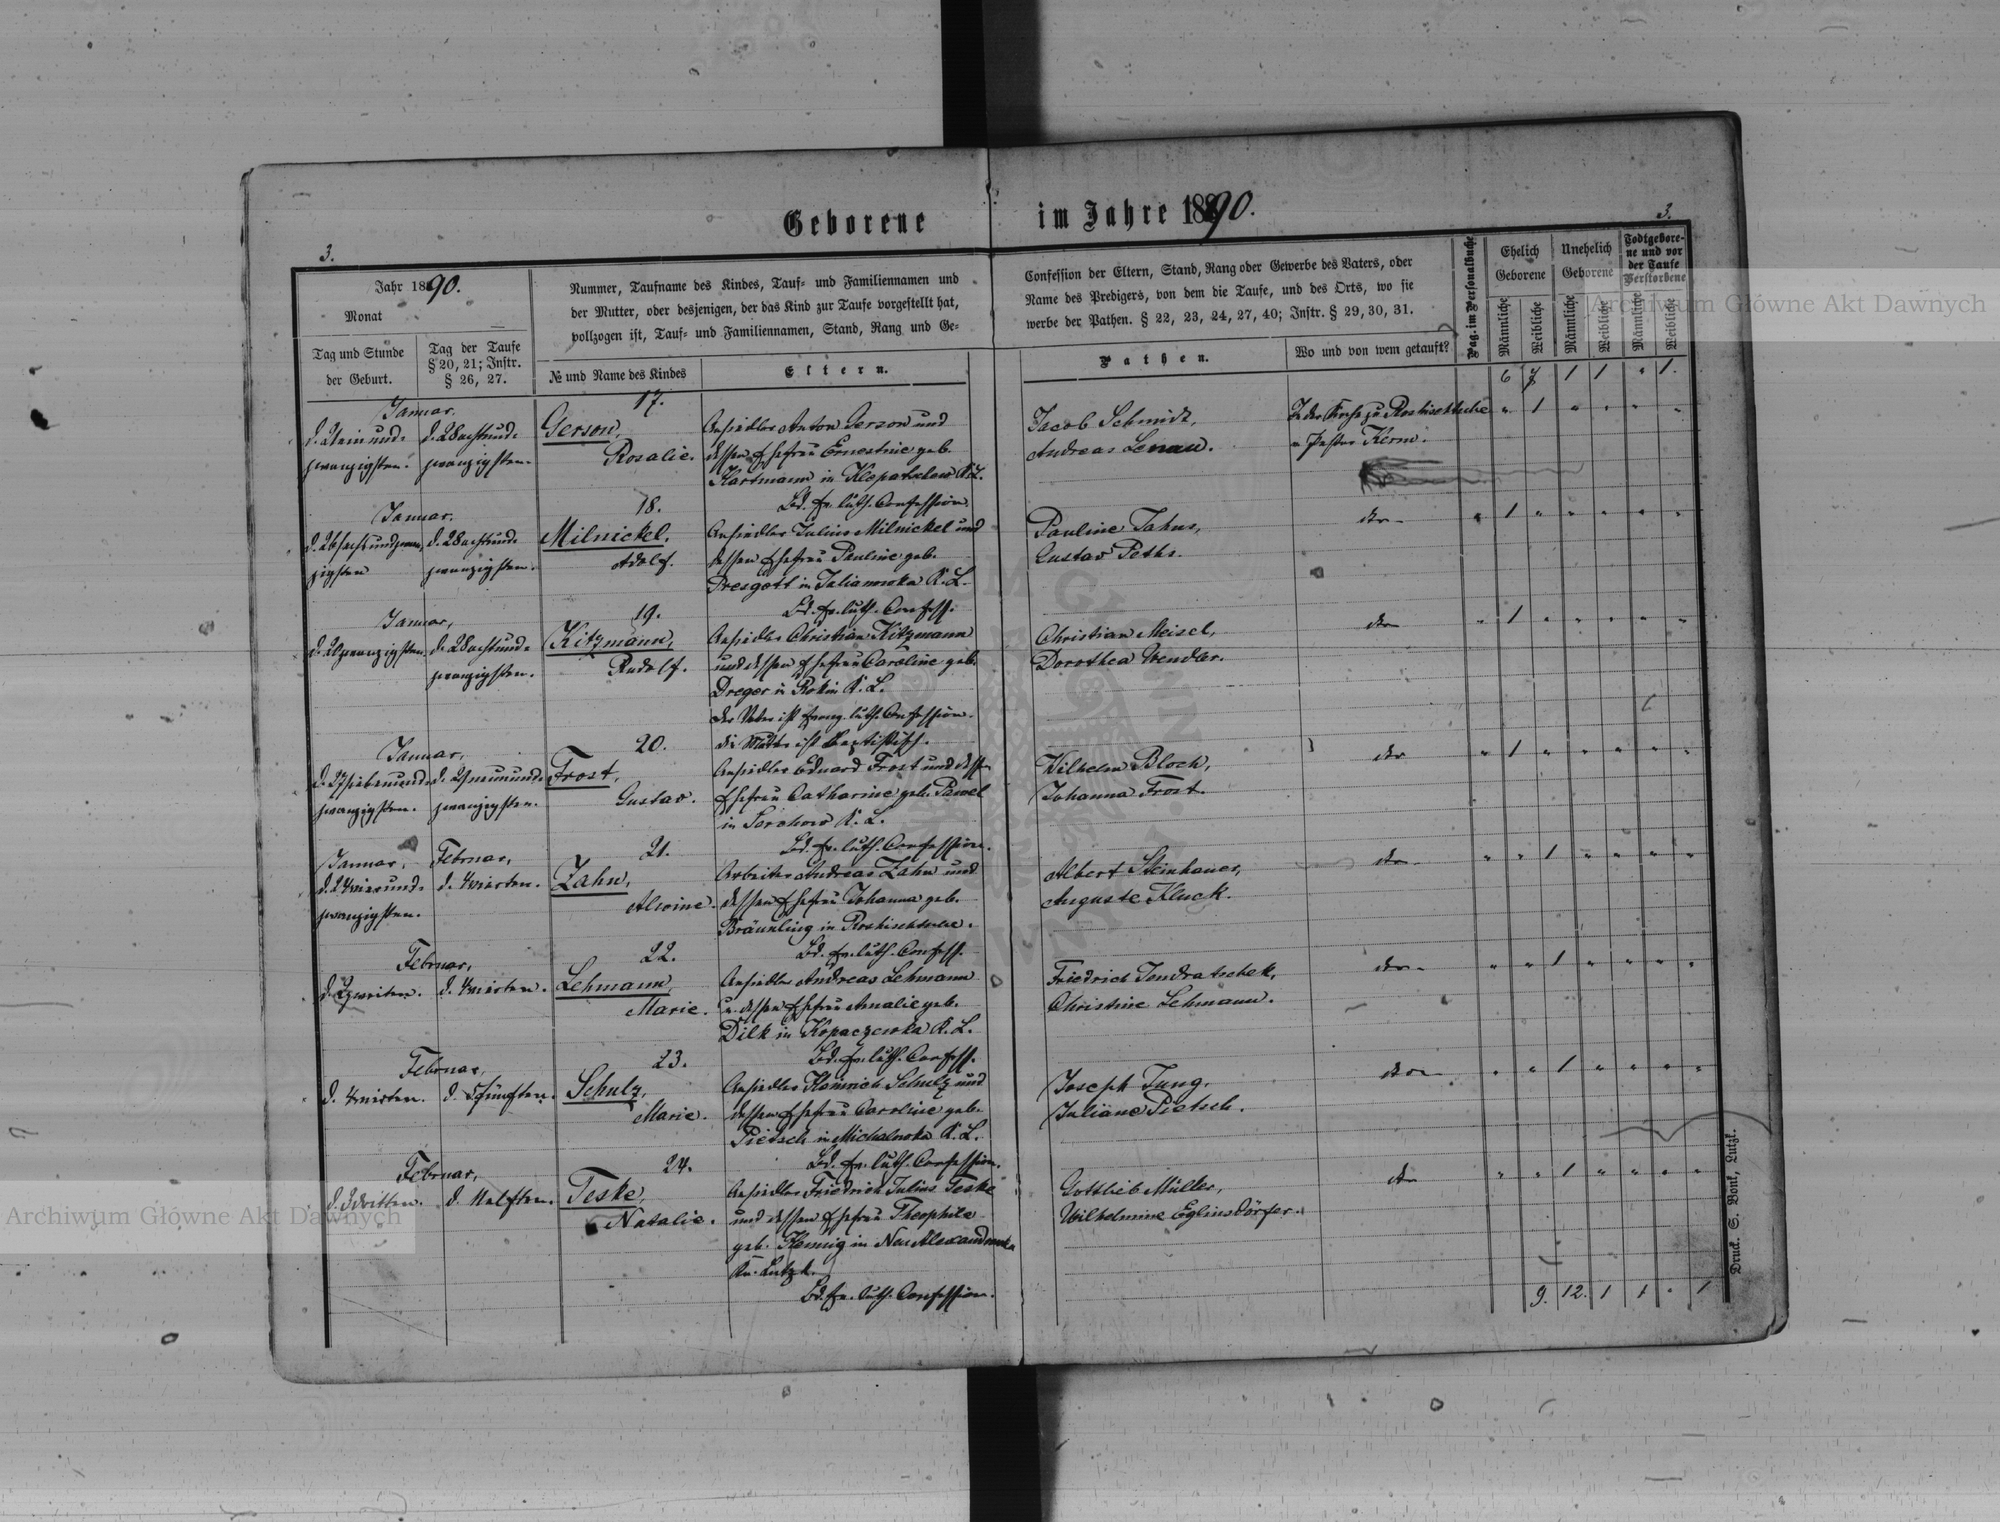 Geborene im Jahre 1890.
3. 3.
Jahr 1890.
Monat
Tag und Stunde
der Geburt.
Tag der Taufe
§ 20, 21; Instr.
§ 26, 27.
Nummer, Taufname des Kindes, Tauf- und Familiennamen und
der Mutter, oder desjenigen, der das Kind zur Taufe vorgestellt hat,
vollzogen ist, Tauf- und Familiennamen, Stand, Rang und Ge-
№ und Name des Kindes
Eltern.
Confession der Eltern, Stand, Rang oder Gewerbe des Vaters, oder
Name des Predigers, von dem die Taufe, und des Orts, wo sie
werbe der Pathen. § 22, 23, 24, 27, 40; Instr. § 29, 30, 31.
Pathen.
Wo und von wem getauft?
Pag. im Personalbuche
Ehelich
Geborene
Unehelich
Geborene
Todtgebore-
ne und vor
der Taufe
Verstorbene
Männliche
Weibliche
Männliche
Weibliche
Männliche
Weibliche
6 7 1 1 " 1.
Januar.
d. 21 ein und-
zwanzigsten.
d. 28 achtund-
zwanzigsten.
17.
Gerson,
Rosalie.
Ansiedler Anton Gerson und
dessen Ehefrau Ernestine geb.
Hartmann in Klopatschew K. L.
Bd. ev. luth. Confession.
Jacob Schmidt,
Andreas Lenau.
In der Kirche zu Roshischtsche
v. Pastor Kerm.
Januar.
d. 26 sechsundzwan-
zigsten
d. 28 achtund-
zwanzigsten.
18.
Milnickel,
Adolf.
Ansiedler Julius Milnickel und
dessen Ehefrau Pauline geb.
Dresgott in Julianowka K. L.
Bd. ev. luth. Confess.
Pauline Jahns,
Gustav Peths.
Januar,
d. 20 zwanzigsten.
d. 28 achtund-
zwanzigsten.
19.
Kitzmann,
Rudolf.
Ansiedler Christian Kitzmann
und dessen Ehefrau Caroline geb.
Dreger in Rokin K. L.
der Vater ist evang. luth. Confession.
die Mutter ist Baptistisch.
Christian Meisel,
Dorothea Wendler.
Januar,
d. 27 siebenund-
zwanzigsten.
d. 29 neunund-
zwanzigsten.
20.
Frost,
Gustav.
Ansiedler Eduard Frost und dessen
Ehefrau Catharine geb. Pawel
in Serchow K. L.
Bd. ev. luth. Confession.
Wilhelm Bloch,
Johanna Frost.
Januar,
d. 24 vierund-
zwanzigsten.
Februar,
d. 4 vierten.
21.
Zahn,
Alwine.
Arbeiter Andreas Zahn und
dessen Ehefrau Johanna geb.
Bräunling in Roshischtsche.
Bd. ev. luth. Confess.
Albert Steinhauer,
Auguste Kluck.
Februar,
d. 2 zweiten.
d. 4 vierten.
22.
Lehmann,
Marie.
Ansiedler Andreas Lehmann
u. dessen Ehefrau Amalie geb.
Dilk in Kopaczewka K. L.
Bd. ev. luth. Confess.
Friedrich Jendratschek,
Christine Lehmann.
Februar,
d. 4 vierten.
d. 5 fünften.
23.
Schulz,
Marie.
Ansiedler Heinrich Schulz und
dessen Ehefrau Caroline geb.
Pietsch in Michalowka K. L.
Bd. ev. luth. Confession.
Joseph Jung,
Juliane Pietsch.
Februar,
d. 3 dritten.
d. 11 elften.
24.
Teske,
Natalie.
Ansiedler Friedrich Julius Teske
und dessen Ehefrau Theophile
geb. Hennig in Neu Alexandrowka
Kr. Lutzk.
Bd. ev. luth. Confession.
Gottlieb Müller,
Wilhelmine Eglinsdörfer.
9. 12. 1 1 " 1
Druck. S. Bonk, Lutzk.
Archiwum Główne Akt Dawnych
Archiwum Główne Akt Dawnych